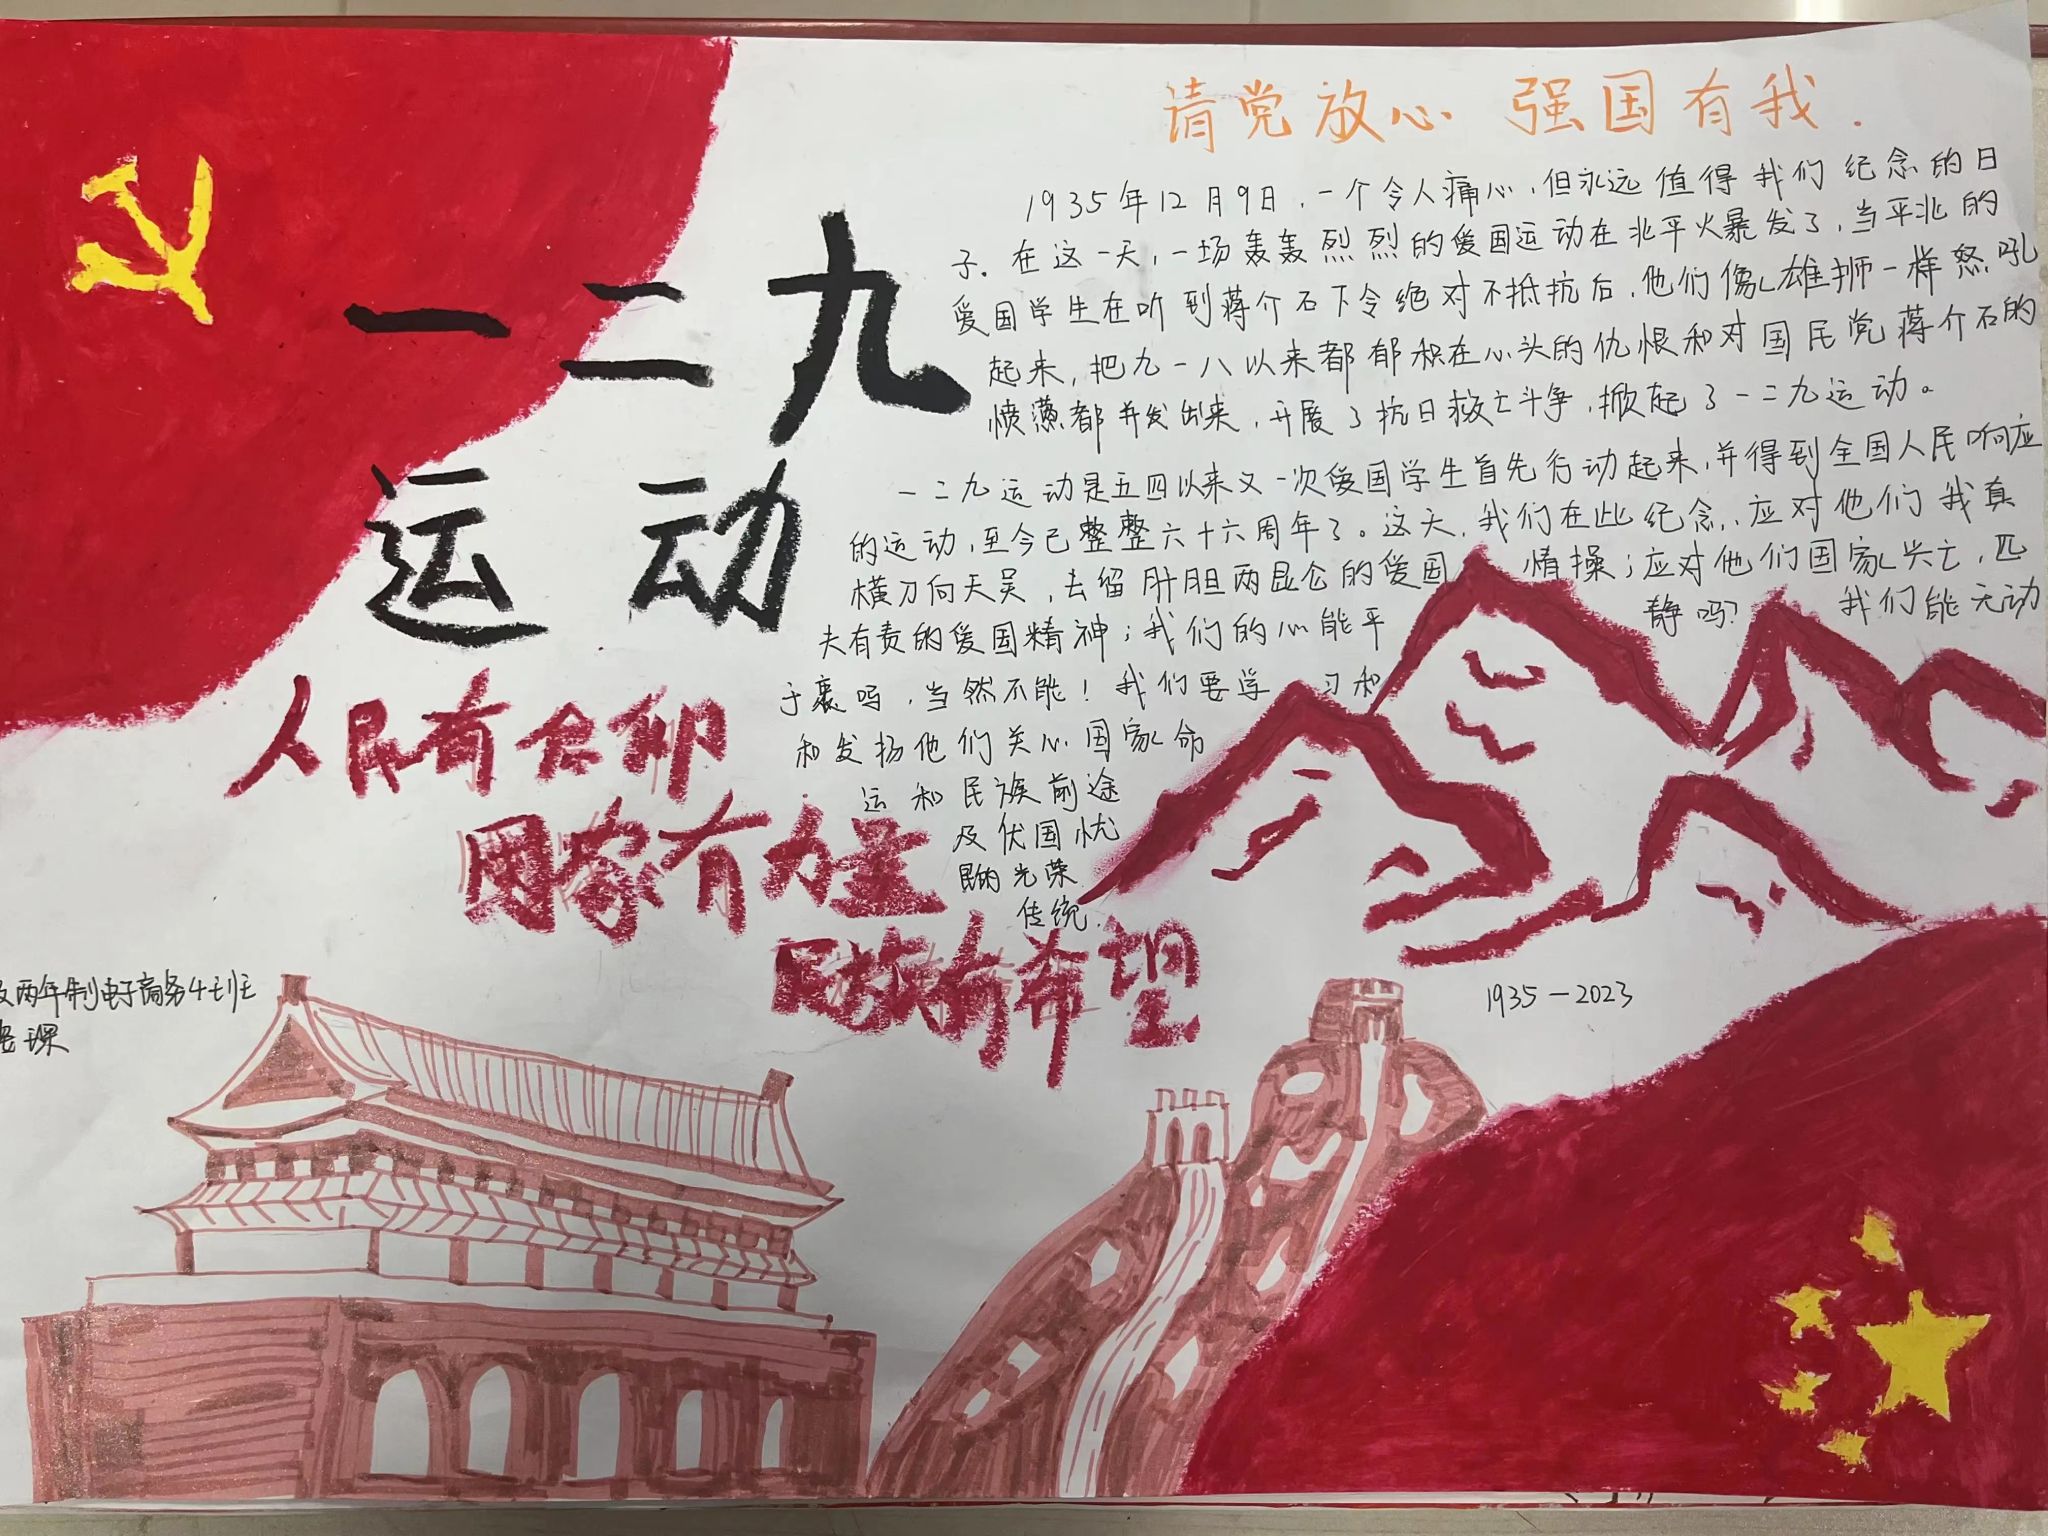 请党放心 强国有我.
一二九
运动
1935年12月9日，一个令人痛心，但永远值得我们纪念的日
子. 在这一天，一场轰轰烈烈的爱国运动在北平火暴发了，当平北的
爱国学生在听到蒋介石下令绝对不抵抗后，他们像雄狮一样怒吼
起来，把九一八以来都郁积在心头的仇恨和对国民党蒋介石的
愤懑都并发出来，开展了抗日救亡斗争，掀起了一二九运动。
一二九运动是五四以来又一次爱国学生首先行动起来，并得到全国人民响应
的运动，至今已整整六十六周年了。这天，我们在此纪念，应对他们我真
横刀向天吴，去留肝胆两昆仑的爱国 情操；应对他们国家兴亡，匹
夫有责的爱国精神；我们的心能平 静吗？ 我们能无动
于衷吗，当然不能！我们要学 习和
和发扬他们关心国家命
运和民族前途
及伏国忧
民的光荣
传统.
人民有信仰
国家有力量
民族有希望
两年制电子商务4班
1935—2023